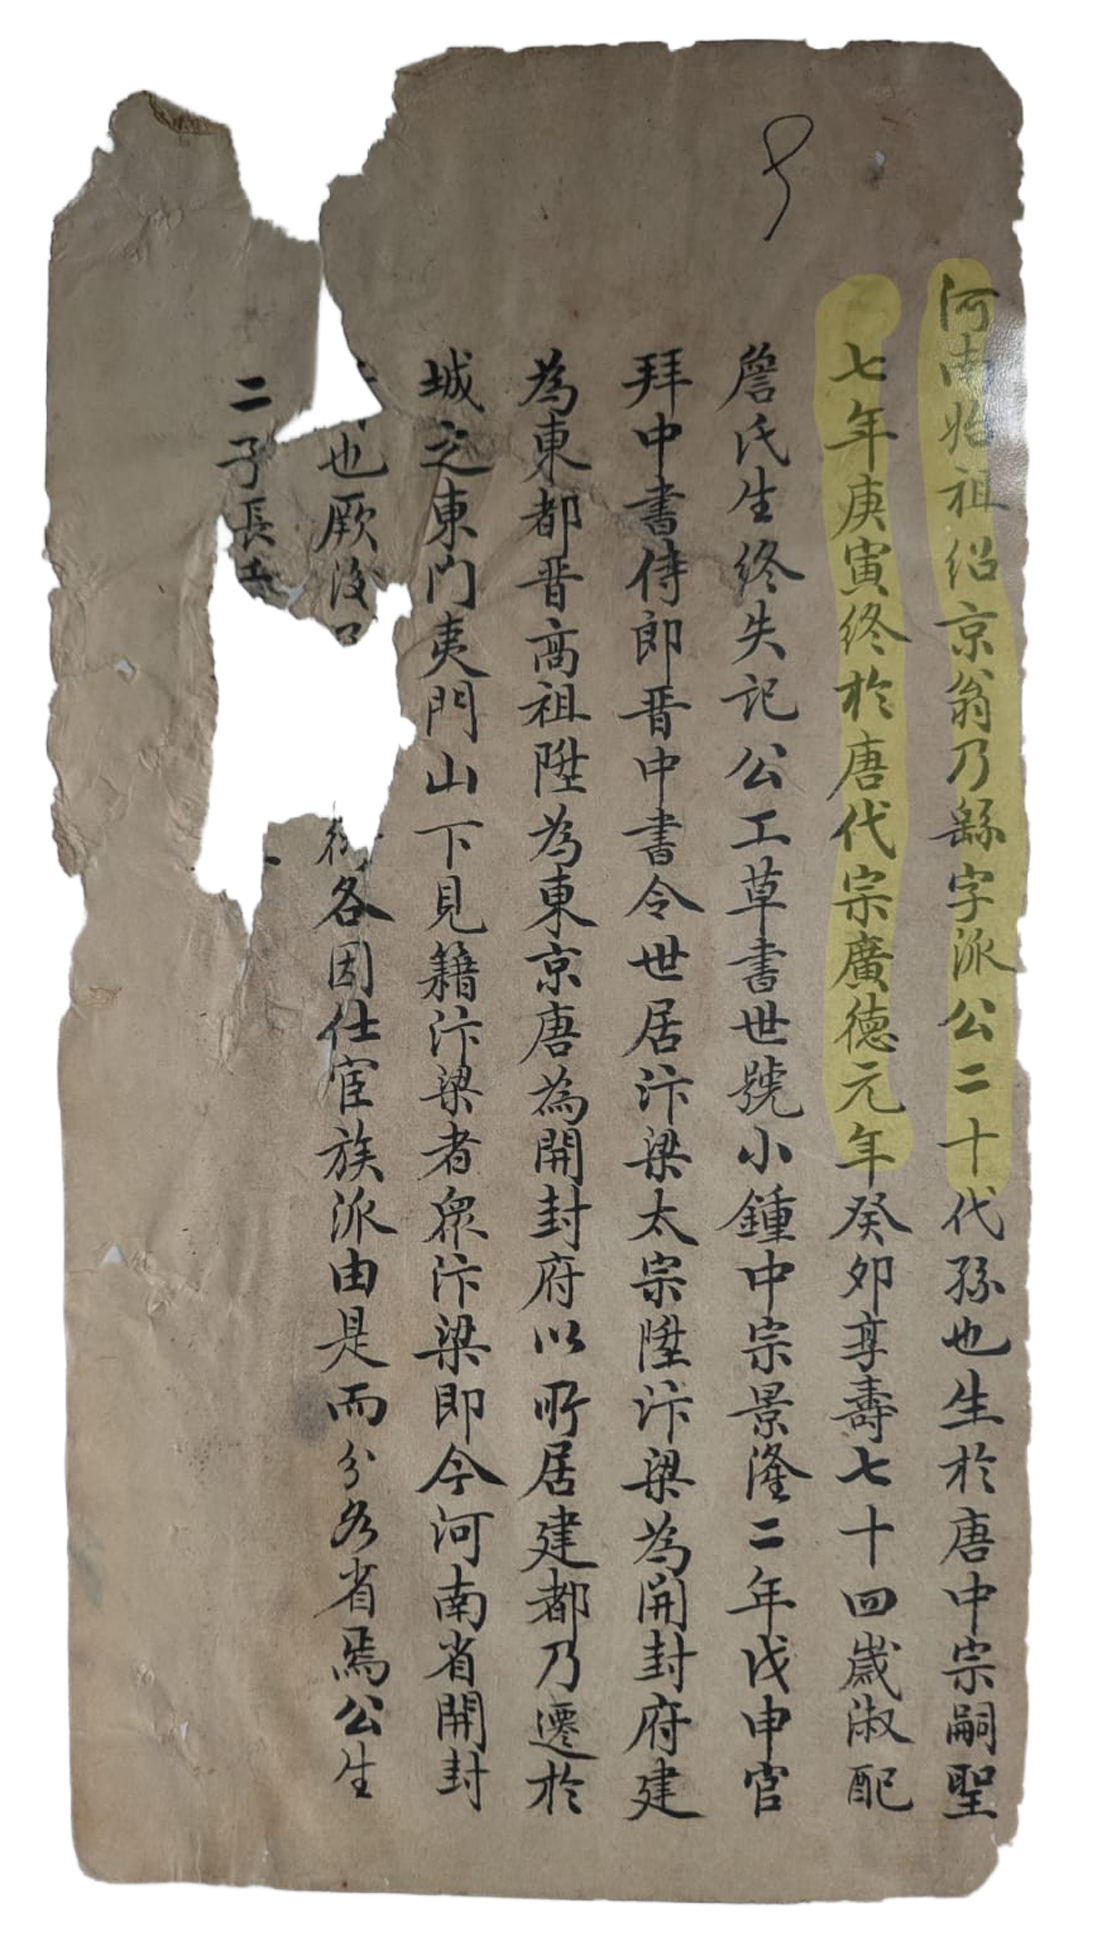 河南始祖紹京翁乃繇字派公二十代孫也生於唐中宗嗣聖
七年庚寅終於唐代宗廣德元年癸卯享壽七十四歲淑配
詹氏生終失記公工草書世號小鍾中宗景隆二年戊申官
拜中書侍郎晋中書令世居汴梁太宗陞汴梁為開封府建
為東都晋高祖陞為東京唐為開封府以所居建都乃遷於
城之東门夷門山下見籍汴梁者众汴梁即今河南省開封
也厥後各因仕宦族派由是而分各省焉公生
二子長